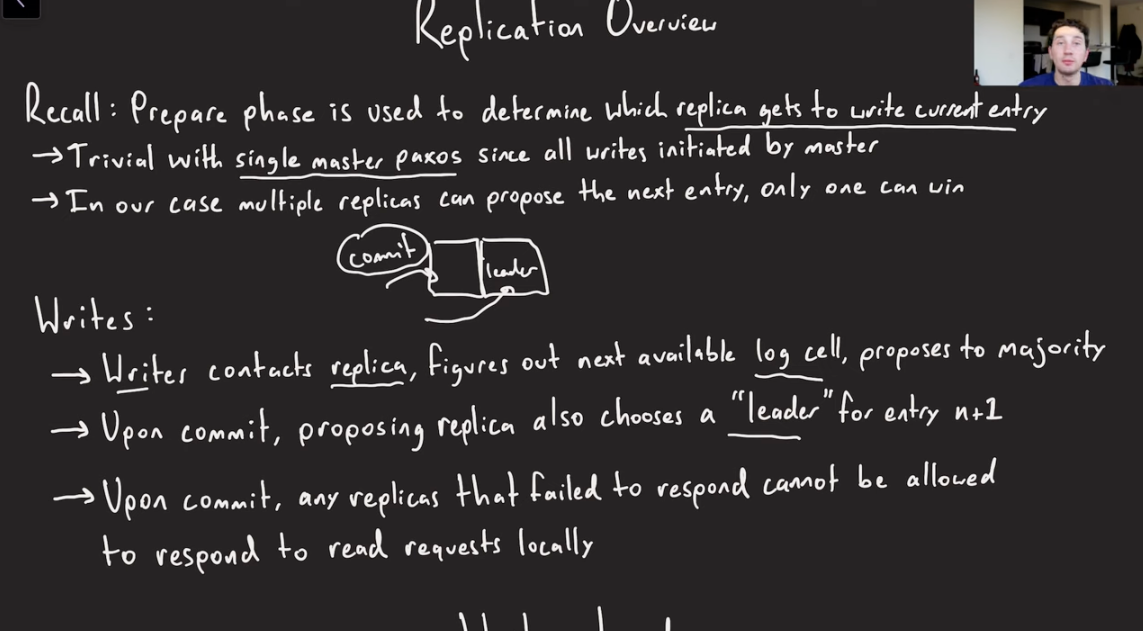 Replication Overview
Recall: Prepare phase is used to determine which replica gets to write current entry
→ Trivial with single master paxos since all writes initiated by master
→ In our case multiple replicas can propose the next entry, only one can win
commit
leader
Writes:
→ Writer contacts replica, figures out next available log cell, proposes to majority
→ Upon commit, proposing replica also chooses a "leader" for entry n+1
→ Upon commit, any replicas that failed to respond cannot be allowed
to respond to read requests locally